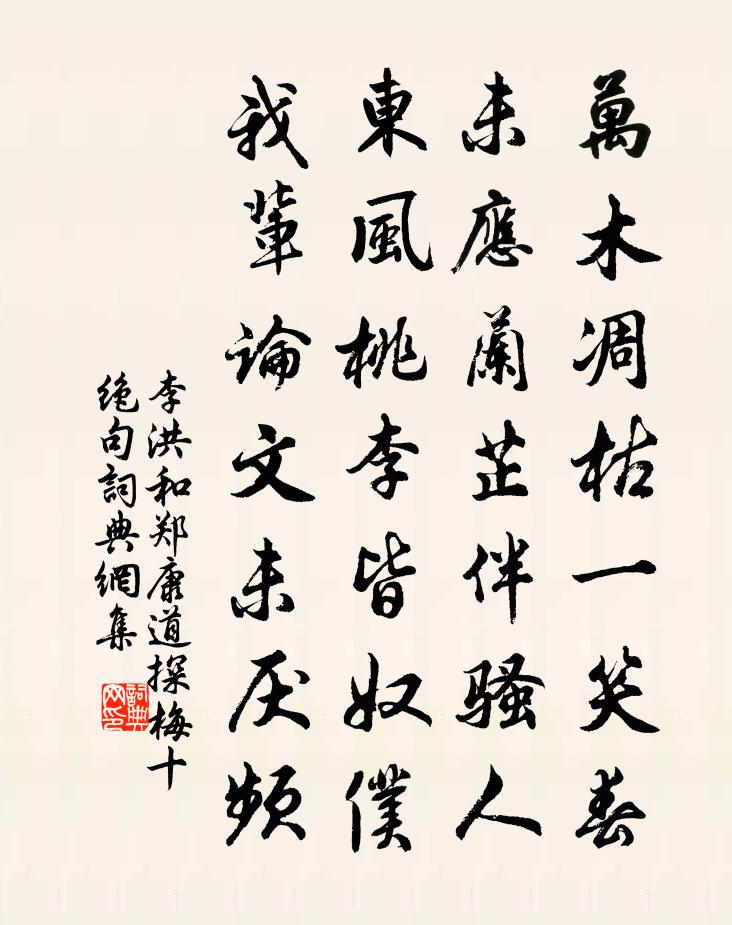 萬木凋枯一笑春
未應蘭芷伴騷人
東風桃李皆奴僕
我輩論文未厌頻
李洪和郑康道探梅十
絶句詞典網集
詞典网印